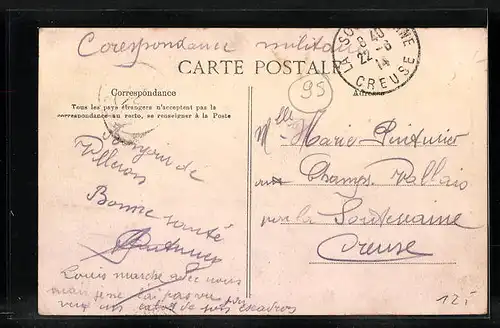 Corespondance militaire
CARTE POSTALE
LA SOUTERRAINE
8 40
22-8
14
CREUSE
95
Correspondance
Adresse
Tous les pays étrangers n'acceptent pas la
correspondance au recto, se renseigner à la Poste
Souvenir de
Villeron
Bonne santé
Louis marche avec nous
mais je ne l'ai pas vu
vu un de ses escadrons
Melle Marie
aux Champs
par la Souterraine
Creuse
12 F